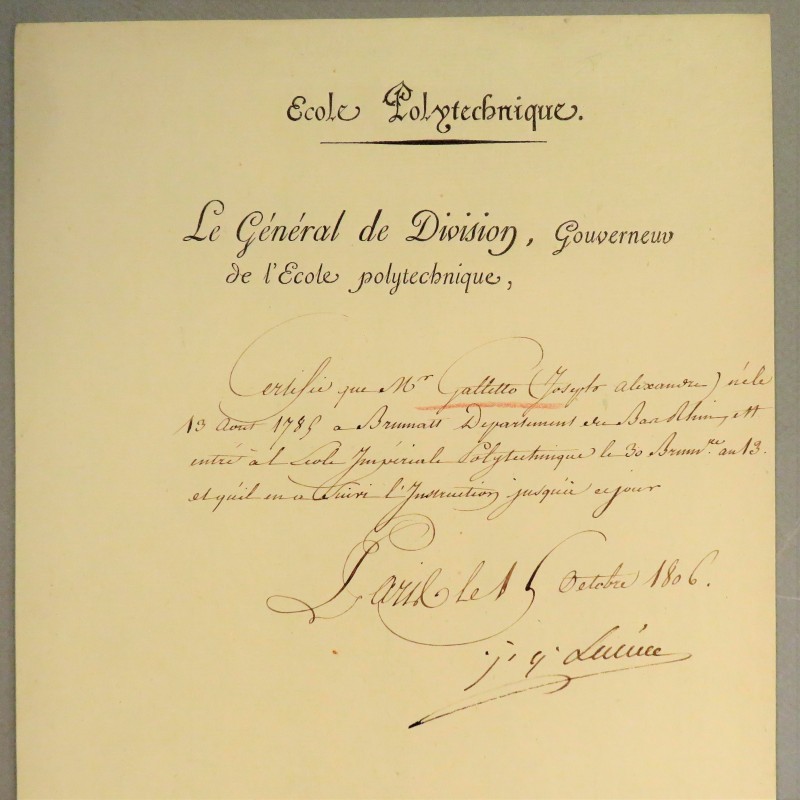 Ecole Polytechnique.
Le Général de Division, Gouverneur
de l'Ecole polytechnique,
Certifie que Mr Galletto (Joseph alexandre) né le
13 Aout 1785 a Brumatt Departement du Bas Rhin, est
entré à l'Ecole Impériale Polytechnique le 30 Brumre. an 13.
et qu'il en a Suivi l'Instruction jusqu'à ce jour
Paris le 15 Octobre 1806.
j. g. Lacuée